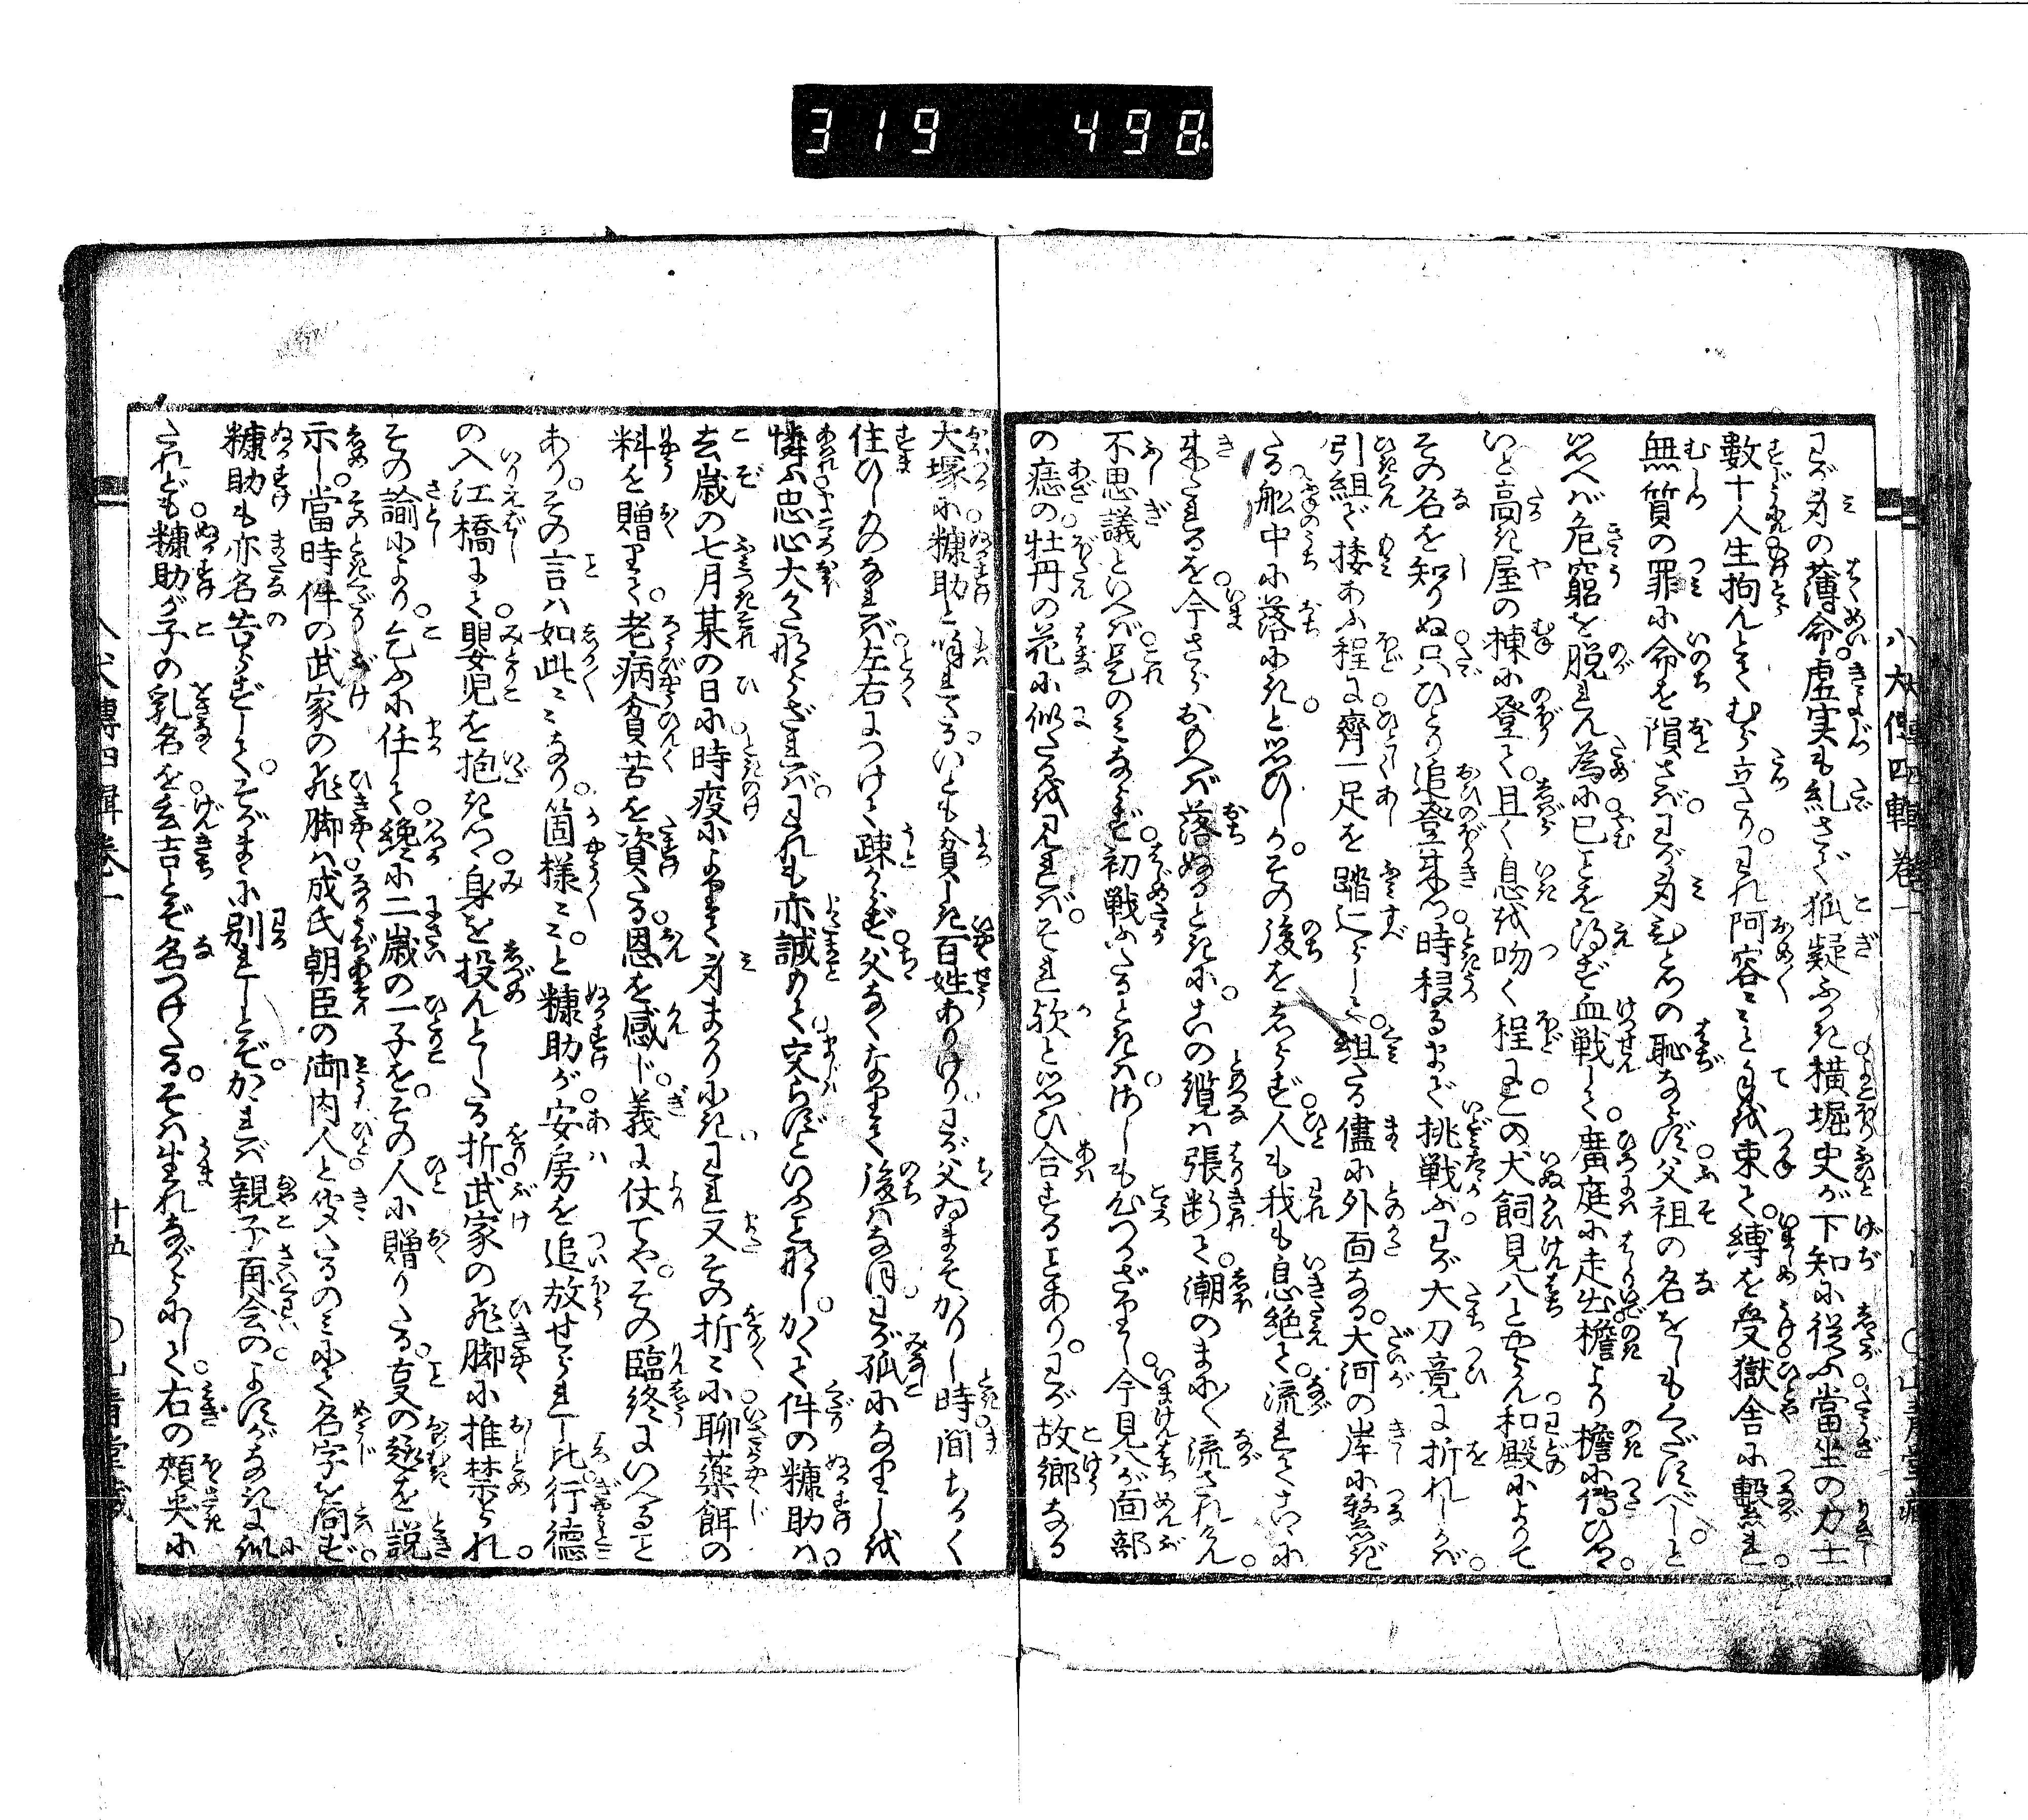 319 498
八犬傳四輯巻一
わが身の薄命虚実も糺さで狐疑ふかき横堀史が下知に從ふ當坐の力士
數十人生拘んとてむら立たり。われ阿容々々と手を束て。縛を受獄舎に繋れ。
無質の罪に命を隕さば。わが身ひとつの恥ならず。父祖の名をしもくだすべし。と
思へば危窮を脱れん為に已ことを得ず血戦して。廣庭に走出檐より檐に傳ひつゝ。
いと高き屋の棟に登て。且く息を吻く程に。この犬飼見八とやらん和殿によりて
その名を知りぬ只ひとり追登来つ時移るまで挑戦ふ。わが大刀竟に折れしかば。
引組で捼あふ程に齊一足を踏辷らして。組たる儘に外面なる。大河の岸に繋ぎ
たる舩中に落にきと思ひしが。その後をしらず。人も我も息絶て。流れてこゝに
来たれるを。今さらおもへば落ぬるときに。その纜は張断て。潮のまに〳〵流されけん。
不思議といへば。是のみならず。初戦ふたるときは。さしも心つかざりし。今見八が面部
の痣の牡丹の花に似たるを見れば。それ歟と思ひ合することあり。わが故郷なる
大塚に糠助と呼れたる。いとも貧しき百姓ありけり。わが父ゐまそかりし時間ちかく
住ひしものなれば。左右につけて疎からず。父なくなりて後はなほ。わが孤になりしを
憐ふ忠心大かたならざれば。われも亦誠もて。交らずといふこと那し。かくて件の糠助は。
去歳の七月某の日に時疫によりて身まかりにき。われ又その折々に聊藥餌の
料を贈りて。老病貧苦を資たる。恩を感じ。義に仗てや。その臨終にいへること
あり。その言は如此々々なり。箇様々々。と糠助が。安房を追放せられし比。行德
の入江橋にて。嬰児を抱きつゝ。身を投んとしたる折。武家の飛脚に推禁られ。
その諭により。乞ふに任して。纔に二歳の一子を。その人に贈りたる。㕝の趣を説
示し。當時件の武家の飛脚は。成氏朝臣の御内人と。聞たるのみにて名字を問ず。
糠助も亦名告らずして。そがまゝに別れしとぞ。かゝれば親子再会の。よすがなきに似
たれども。糠助が子の乳名を。玄吉とぞ名つけたる。そは生れながらにして。右の頬尖に
八犬傳四輯巻一
十五
山青堂藏